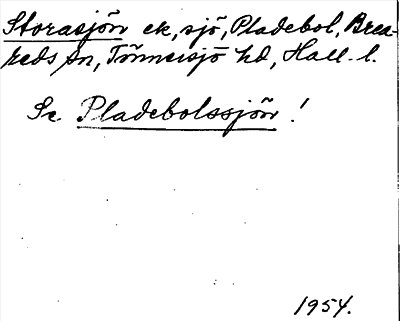 Storasjön ek, sjö, Pladebol, Brea-
reds sn, Tönnersjö hd, Hall. l.
Se Pladebolssjön!
1954.